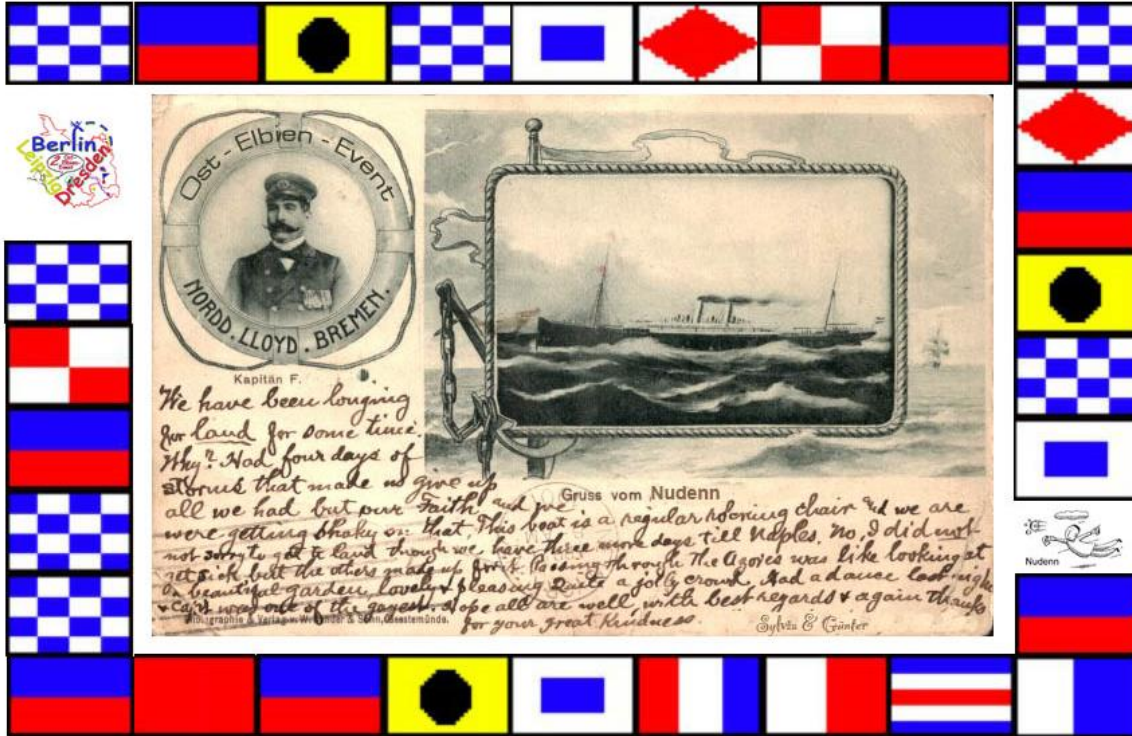 Berlin
Leipzig
Dresden
Ost - Elbien - Event
NORDD. LLOYD. BREMEN.
Kapitän F.
We have been longing
for land for some time.
Why? Had four days of
storms that made us give up
Gruss vom Nudenn
all we had but our Faith and we
were getting shaky on that, This boat is a regular rocking chair and we are
not sorry to get to land though we have three more days till Naples. No, I did not
get sick but the others made up for it. Passing through the Azores was like looking at
a beautiful garden, lovely & pleasing Quite a jolly crowd. Had a dance last night
& Cap't was one of the gayest. Hope all are well, with best regards & again thanks
for your great kindness.
& Verlag v. W. & Sohn, Geestemünde.
Sylvia & Günter
Nudenn